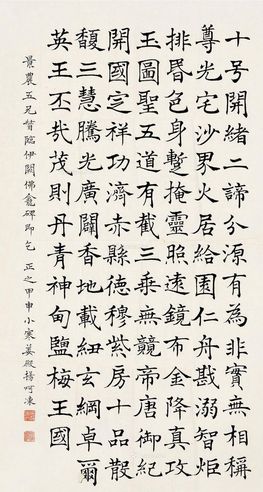 十号開緒二諦分源有為非實無相稱
尊光宅沙界火居給園仁舟戡溺智炬
排昬色身蹔掩靈照遠鏡布金降真攻
玉圖聖五道有截三乘無競帝唐御紀
開國定祥功濟赤縣德穆紫房十品散
馥三慧騰光廣闢香地載紐玄綱卓爾
英王丕哉茂則丹青神甸鹽梅王國
景農五兄督臨伊闕佛龕碑即乞 正之甲申小寒姜殿揚呵凍